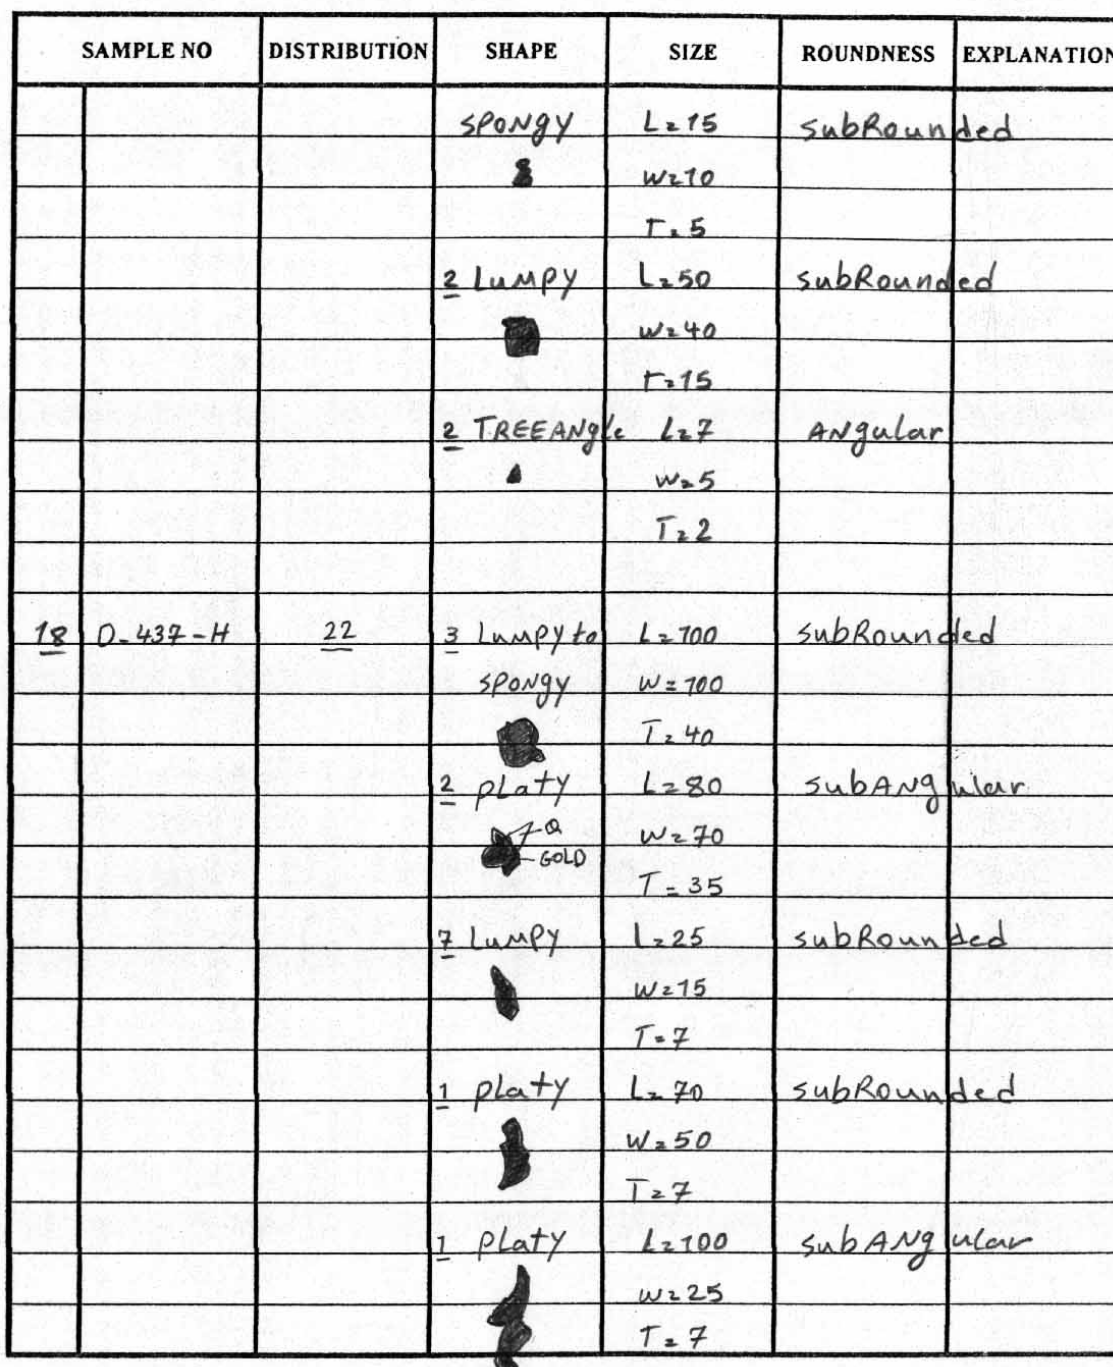 SAMPLE NO DISTRIBUTION SHAPE SIZE ROUNDNESS EXPLANATION
SPONGY L=15 subRounded
W=10
T=5
2 Lumpy L=50 subRounded
W=40
T=15
2 TREEANgle L=7 ANgular
W=5
T=2
18 D-437-H 22 3 Lumpy to L=100 subRounded
SPONGY W=100
T=40
2 platy L=80 subANgular
Q W=70
GOLD
T=35
7 Lumpy L=25 subRounded
W=15
T=7
1 platy L=70 subRounded
W=50
T=7
1 platy L=100 subANgular
W=25
T=7